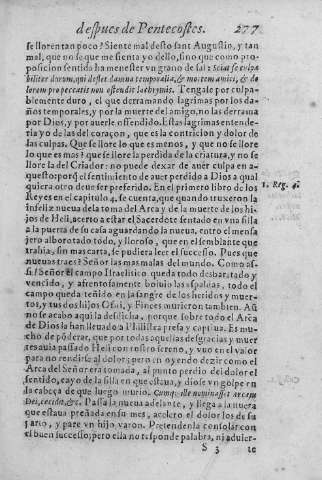 despues de Pentecostes. 277
se lloren tan poco? Siente mal desto sant Augustin, y tan
mal, que no se que me sienta yo dello, sino que como pro
posicion sentida ha menester vn grano de sal: Sciat se culpa
biliter durum, qui deflet damna temporalia, & mortem amici, & do
lorem pro peccatis non ostendit lachrymis. Tengase por culpa
blemente duro, el que derramando lagrimas por los da
ños temporales, y por la muerte del amigo, no las derrama
por Dios, y por auerle offendido. Estas lagrimas entende
ria yo de las del coraçon, que es la contricion y dolor de
las culpas. Que se llore lo que es menos, y que no se llore
lo que es mas? que se llore la perdida de la criatura, y no se
llore la del Criador: no puede dexar de auer culpa en a-
questo: porq̃ el sentimiento de auer perdido a Dios a qual
quiera otro deue ser preferido. En el primero libro de los
Reyes en el capitulo 4. se cuenta, que quando truxeron la 1. Reg. 4.
infelix nueua de la toma del Arca y de la muerte de los hi-
jos de Heli, acerto a estar el Sacerdote sentado en vna silla
a la puerta de su casa aguardando la nueua. entro el mensa
jero alborotado todo, y lloroso, que en el semblante que
trahia, sin mas carta, se pudiera leer el successo. Pues que
nueuas traes? Señor las mas malas del mundo. Como as-
si? Señor el campo Israelitico queda todo desbaratado y
vencido, y afrentosamente boluio las espaldas, todo el
campo queda teñido en la sangre de los heridos y muer-
tos, y tus dos hijos Ofni, y Finees murieron tambien. Aũ
no se acabo aqui la desdicha, porque sobre todo el Arca
de Dios la han lleuado a Philistea presa y captiua. Es mu-
cho de põderar, que por todas aquellas desgracias y muer
tes auia passado Heli con rostro sereno, y vuo en el valor
para no rendirse al dolor; pero en oyendo dezir como el
Arca del Señor era tomada, al punto perdio del dolor el
sentido, cayo de la silla en que estaua, y diose vn golpe en
la cabeça de que luego murio. Cumque ille nominasset arcam
Dei, cecidit, &c. Passa la nueua adelante, y llega a la nuera
que estaua preñada en su mes, acelero el dolor los de su
parto, y pare vn hijo varon. Pretendenla consolar con
el buen successo; pero ella no responde palabra, ni aduier-
S 3 te